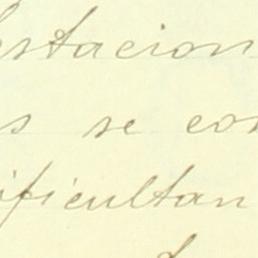 estacion
s se con
ificultan